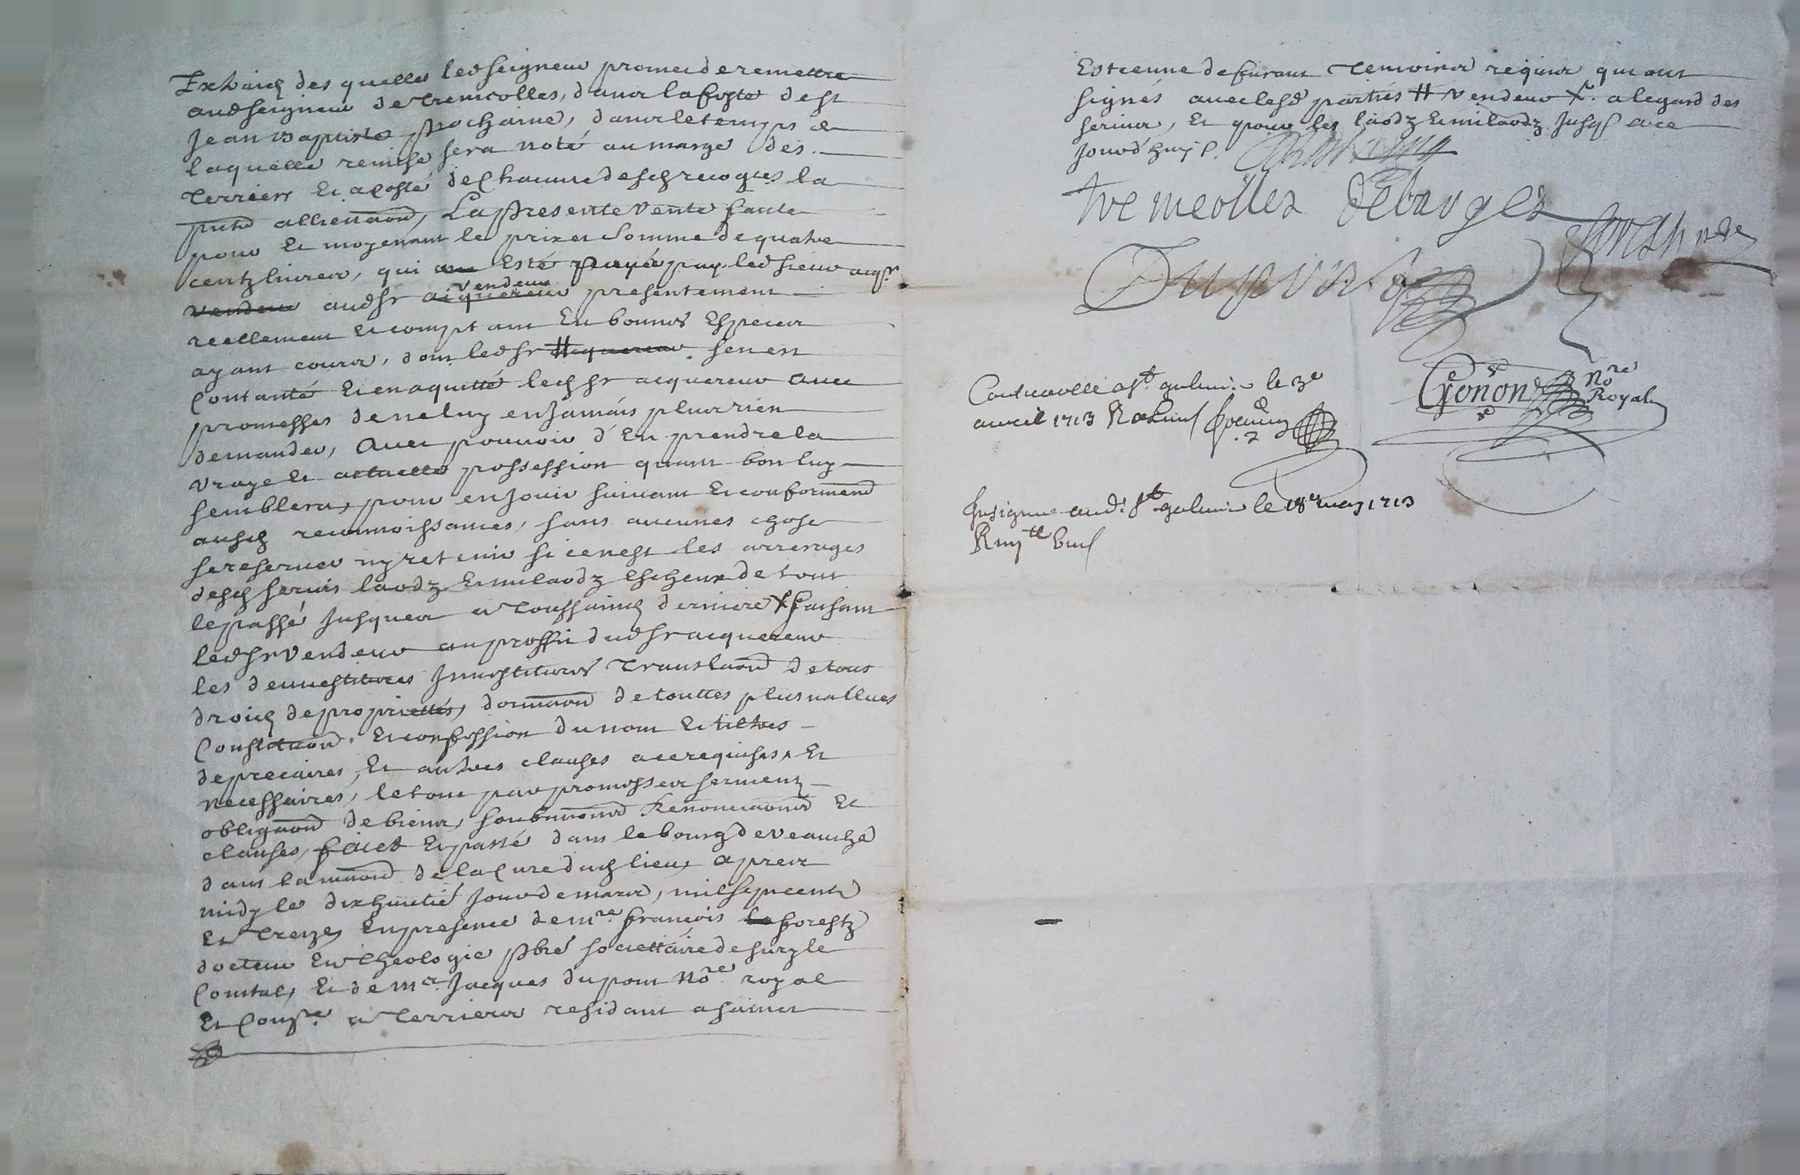 Extraicz des quelles led seigneur promet de remettre
aud seigneur de Tremeolles, dans la feste de st
Jean Baptiste prochaine, dans le temps de
laquelle remise sera noté au marge des
terriers et a costé de chacune desd recogces la
pnte allienaon, La presente vente faicte
pour et moyenant le prix et somme de quatre
centz livres, qui esté payé par led sieur acqr
vendeur aud sr acquereur vendeur presentement
reellement et comptant en bonnes especes
ayant cours, dont led sr # acquereur s'en est
contanté et en a quitté led sr acquereur avec
promesses de ne luy en jamais plus rien
demander, avec pouvoir d'en prendre la
vraye et actuelle possession quant bon luy
semblera, pour en jouir suivant et conformemt
ausd reconnoissances, sans aucunes chose
se reserver ny retenir si ce n'est les arrerages
desd servis laodz et milaodz escheux de tout
le passé jusques a Toussainctz derniere X faisant
led sr vendeur au proffit dud sr acquereur
les devestitures Investitures translaon de tous
droictz de proprietté, donnaon de touttes plus vallues
constituon, et confession du nom et tiltres
de precaires, et autres clauses a ce requises, et
necessaires, le tout par promesses serment
obligaon de biens, soubmions renonciaons et
clauses, faict et passé dans le bourg de Veauche
dans la maison de la cure dud lieu, apres
midy le dix huictie jour de mars, mil sept cents
et treize, en presence de mre françois laforestz
docteur en theologie pbre societtaire de sury le
Comtal, et de mre Jacques dupont nore royal
et Comre a terriers residant a sainct
Estienne de furant temoins requis qui ont
signés avec lesd parties # vendeur X a legard des
servis, et pour les laodz et milaodz jusq a ce
jourd'huy
Tremeolles Debarges
Dupont
Gonon nore
Royal
Contraolle a St galmier le 3e
avril 1713
Insigné aud. St galmier le 18e may 1713